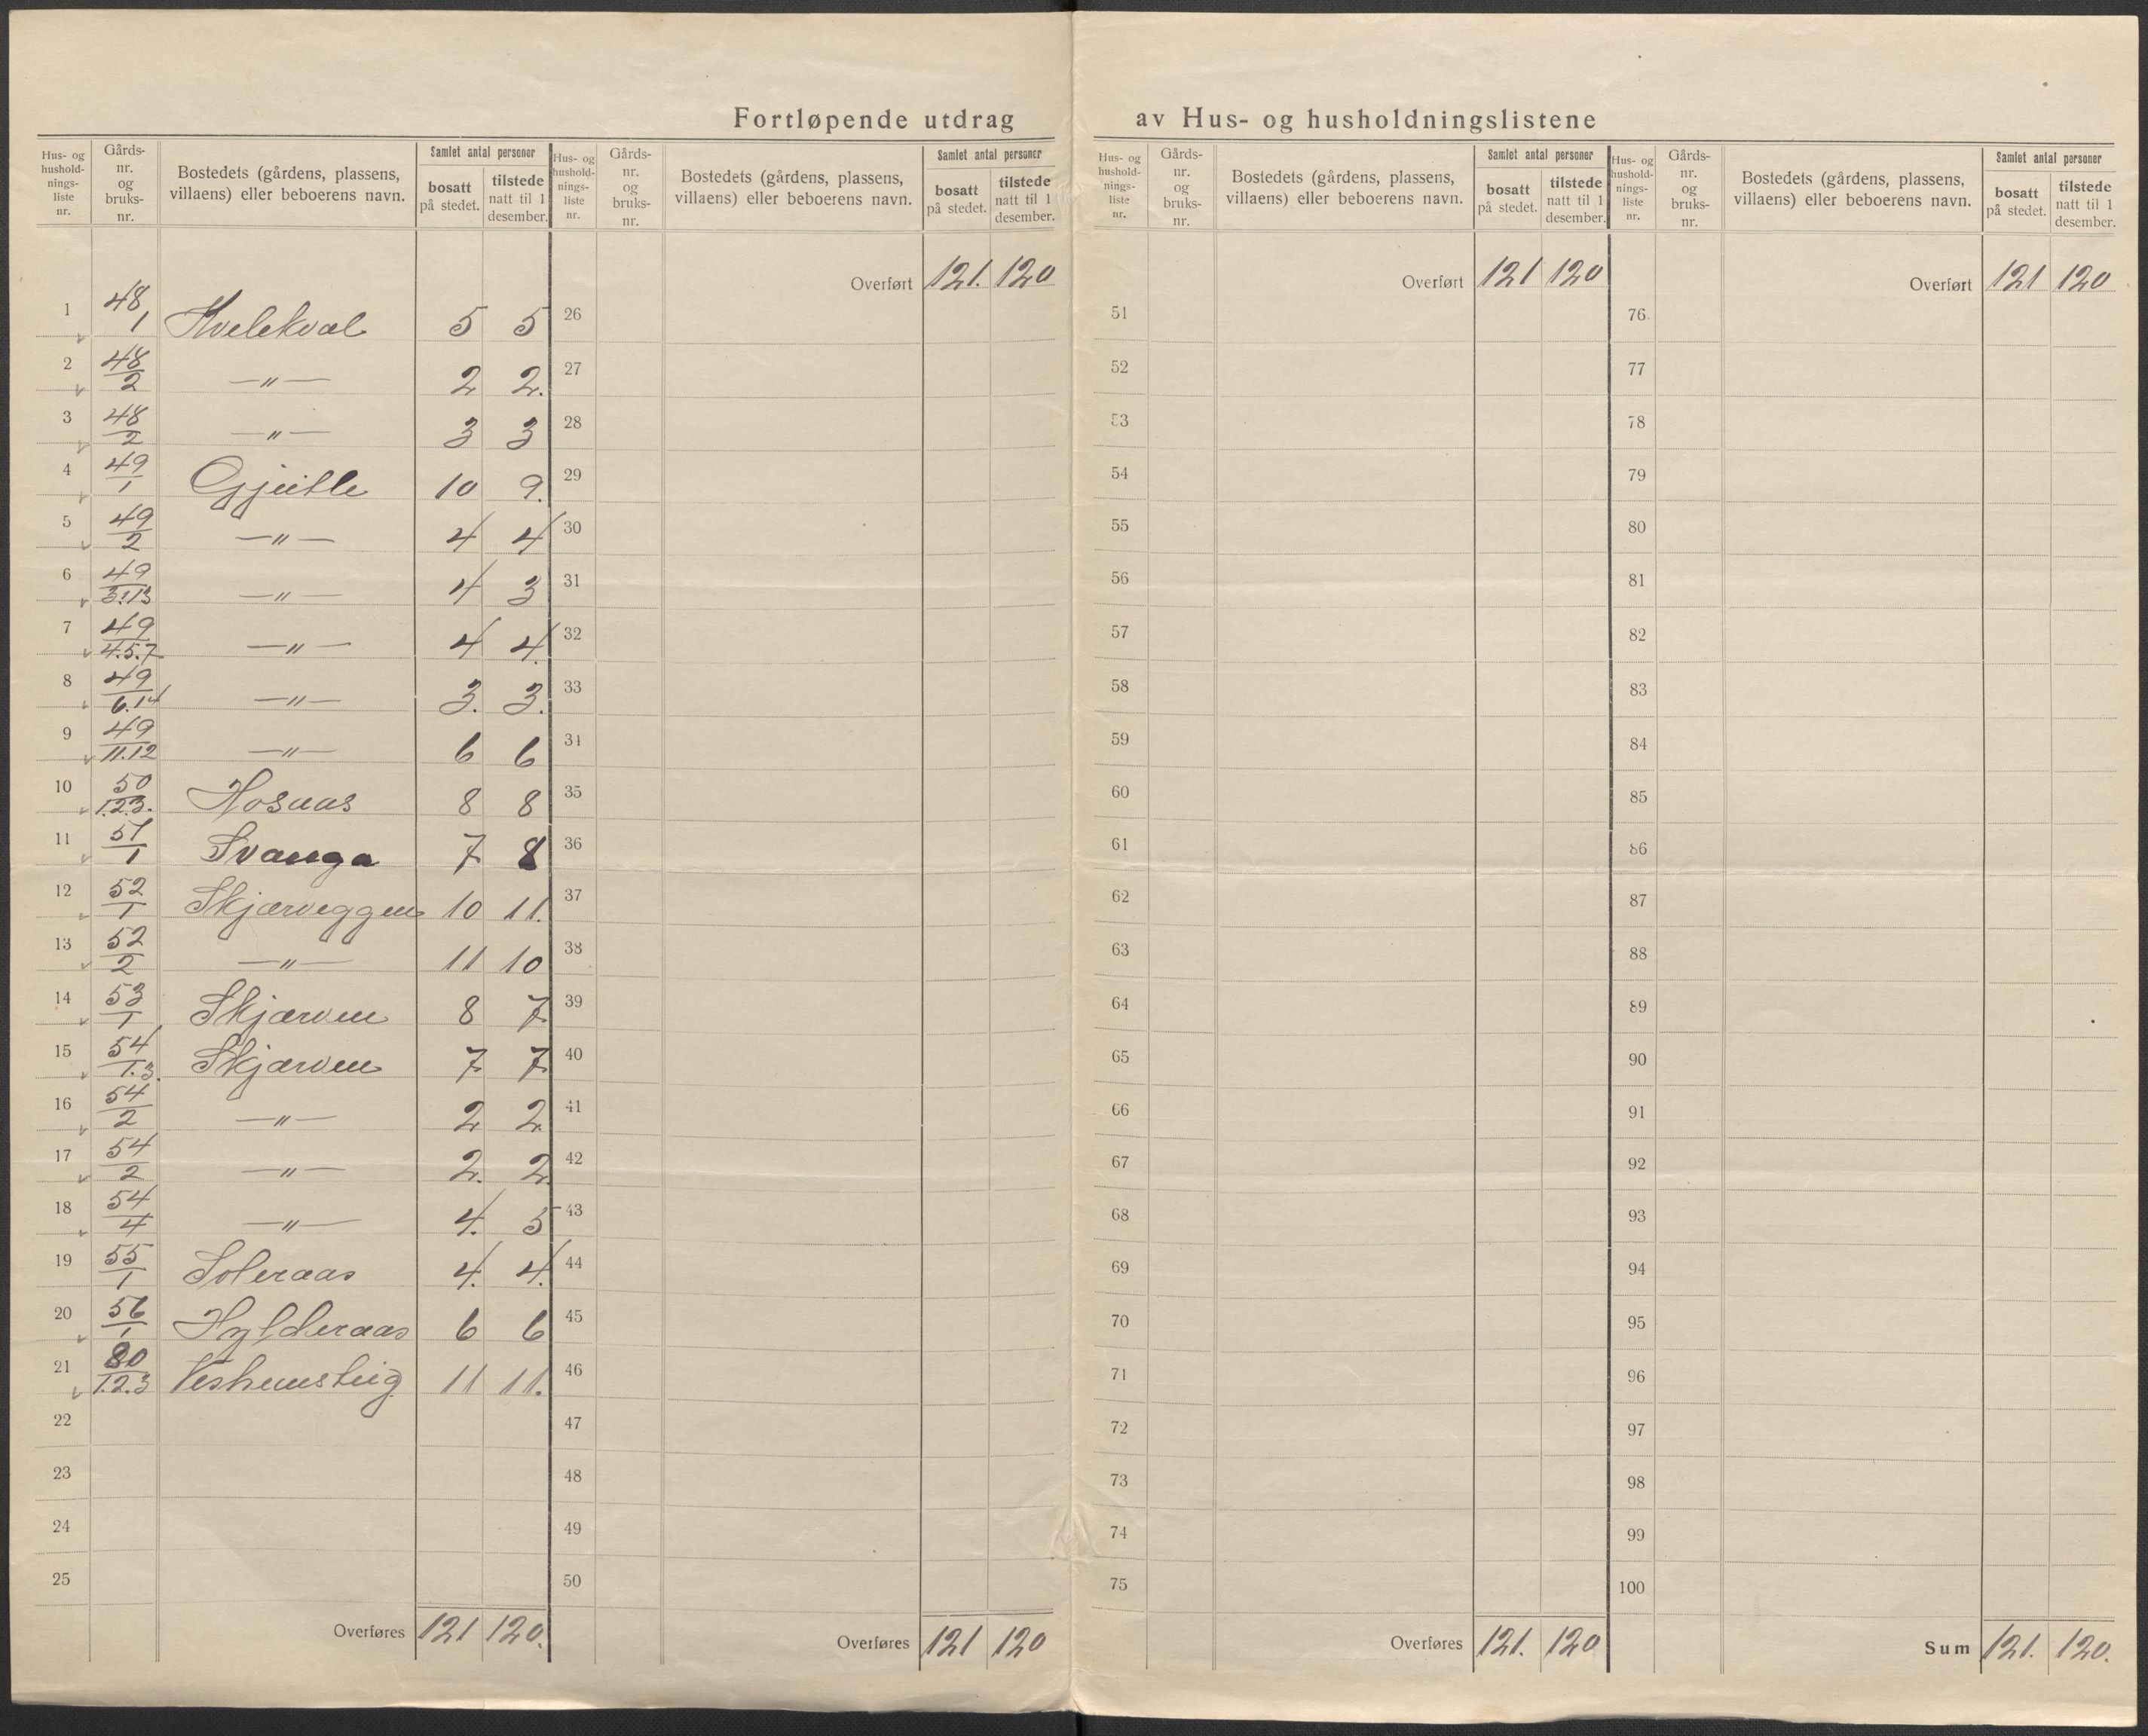 Fortløpende utdrag av Hus- og husholdningslistene
Hus- og hushold-nings-liste nr. | Gårds-nr. og bruks-nr. | Bostedets (gårdens, plassens, villaens) eller beboerens navn. | Samlet antal personer | bosatt på stedet. | tilstede natt til 1 desember.
1 48/1 Kvelekval 5 5
2 48/2 —〃— 2 2.
3 48/2 —〃— 3 3
4 49/1 Gjeitle 10 9.
5 49/2 —〃— 4 4
6 49/3.13 —〃— 4 3
7 49/4.5.7 —〃— 4 4.
8 49/6.14 —〃— 3. 3.
9 49/11.12 —〃— 6 6
10 50/1.2.3. Hosaas 8 8
11 51/1 Svanga 7 8
12 52/1 Skjærveggen 10 11.
13 52/2 —〃— 11 10
14 53/1 Skjærven 8 7
15 54/1.3. Skjærven 7 7
16 54/2 —〃— 2 2
17 54/2 —〃— 2. 2.
18 54/4 —〃— 4. 5
19 55/1 Soleraas 4. 4.
20 56/1 Hylderaas 6 6
21 80/1.2.3 11 11.
22
23
24
25
Overføres 121 120.
Hus- og hushold-nings-liste nr. | Gårds-nr. og bruks-nr. | Bostedets (gårdens, plassens, villaens) eller beboerens navn. | Samlet antal personer | bosatt på stedet. | tilstede natt til 1 desember.
Overført 121. 120
26
27
28
29
30
31
32
33
34
35
36
37
38
39
40
41
42
43
44
45
46
47
48
49
50
Overføres 121 120
Hus- og hushold-nings-liste nr. | Gårds-nr. og bruks-nr. | Bostedets (gårdens, plassens, villaens) eller beboerens navn. | Samlet antal personer | bosatt på stedet. | tilstede natt til 1 desember.
Overført 121 120
51
52
53
54
55
56
57
58
59
60
61
62
63
64
65
66
67
68
69
70
71
72
73
74
75
Overføres 121. 120
Hus- og hushold-nings-liste nr. | Gårds-nr. og bruks-nr. | Bostedets (gårdens, plassens, villaens) eller beboerens navn. | Samlet antal personer | bosatt på stedet. | tilstede natt til 1 desember.
Overført 121 120
76.
77
78
79
80
81
82
83
84
85
86
87
88
89
90
91
92
93
94
95
96
97
98
99
100
Sum 121. 120.